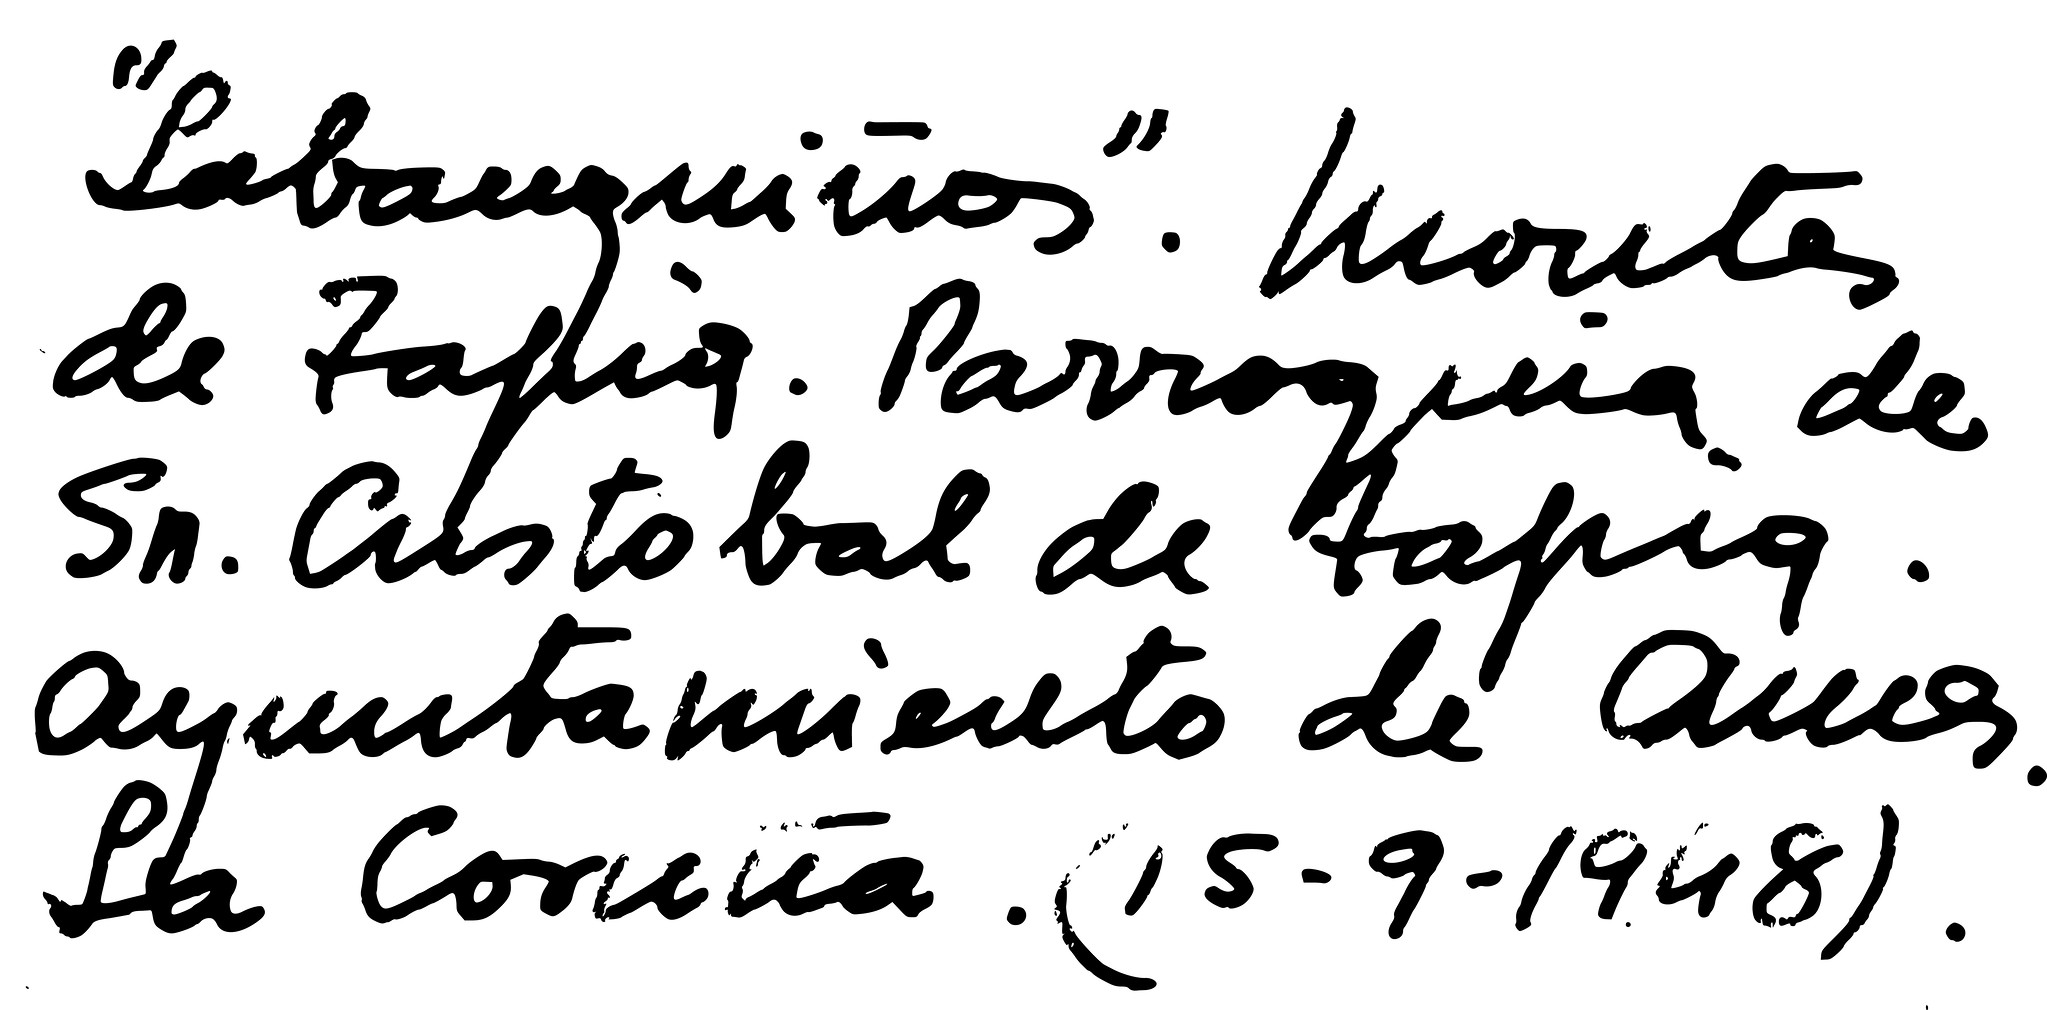 "Labanquiños". Montes
de Tapia. Parroquia de
Sn. Cristobal de Tapia.
Ayuntamiento de Ames.
La Coruña. (15-9-1948).